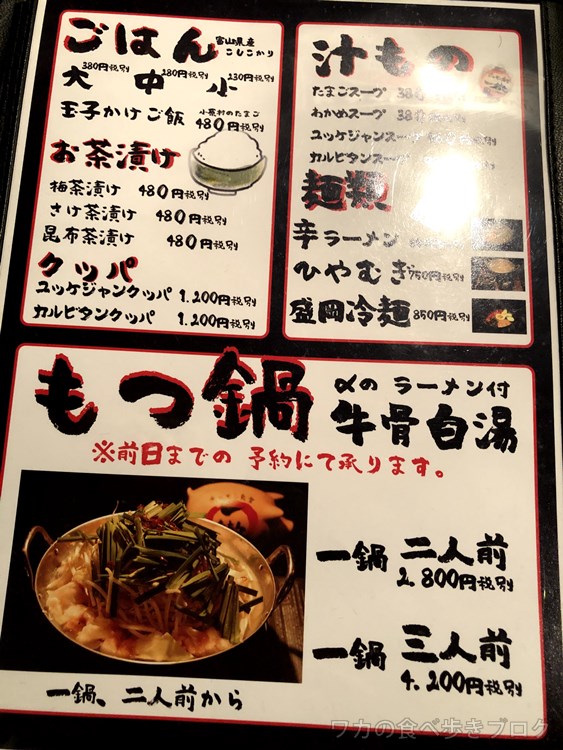 ごはん 富山県産 こしひかり
大 380円税別 中 280円税別 小 230円税別
玉子かけご飯 小原村のたまご 480円税別
お茶漬け
梅茶漬け 480円税別
さけ茶漬け 480円税別
昆布茶漬け 480円税別
クッパ
ユッケジャンクッパ 1.200円税別
カルビタンクッパ 1.200円税別
汁もの
たまごスープ
わかめスープ
ユッケジャンスープ
カルビタンスープ
麺類
辛ラーメン
ひやむぎ 750円税別
盛岡冷麺 850円税別
もつ鍋 〆の ラーメン付
牛骨白湯
※前日までの 予約にて承ります。
一鍋 二人前
2.800円税別
一鍋 三人前
4.200円税別
一鍋、二人前から
ワカの食べ歩きブログ